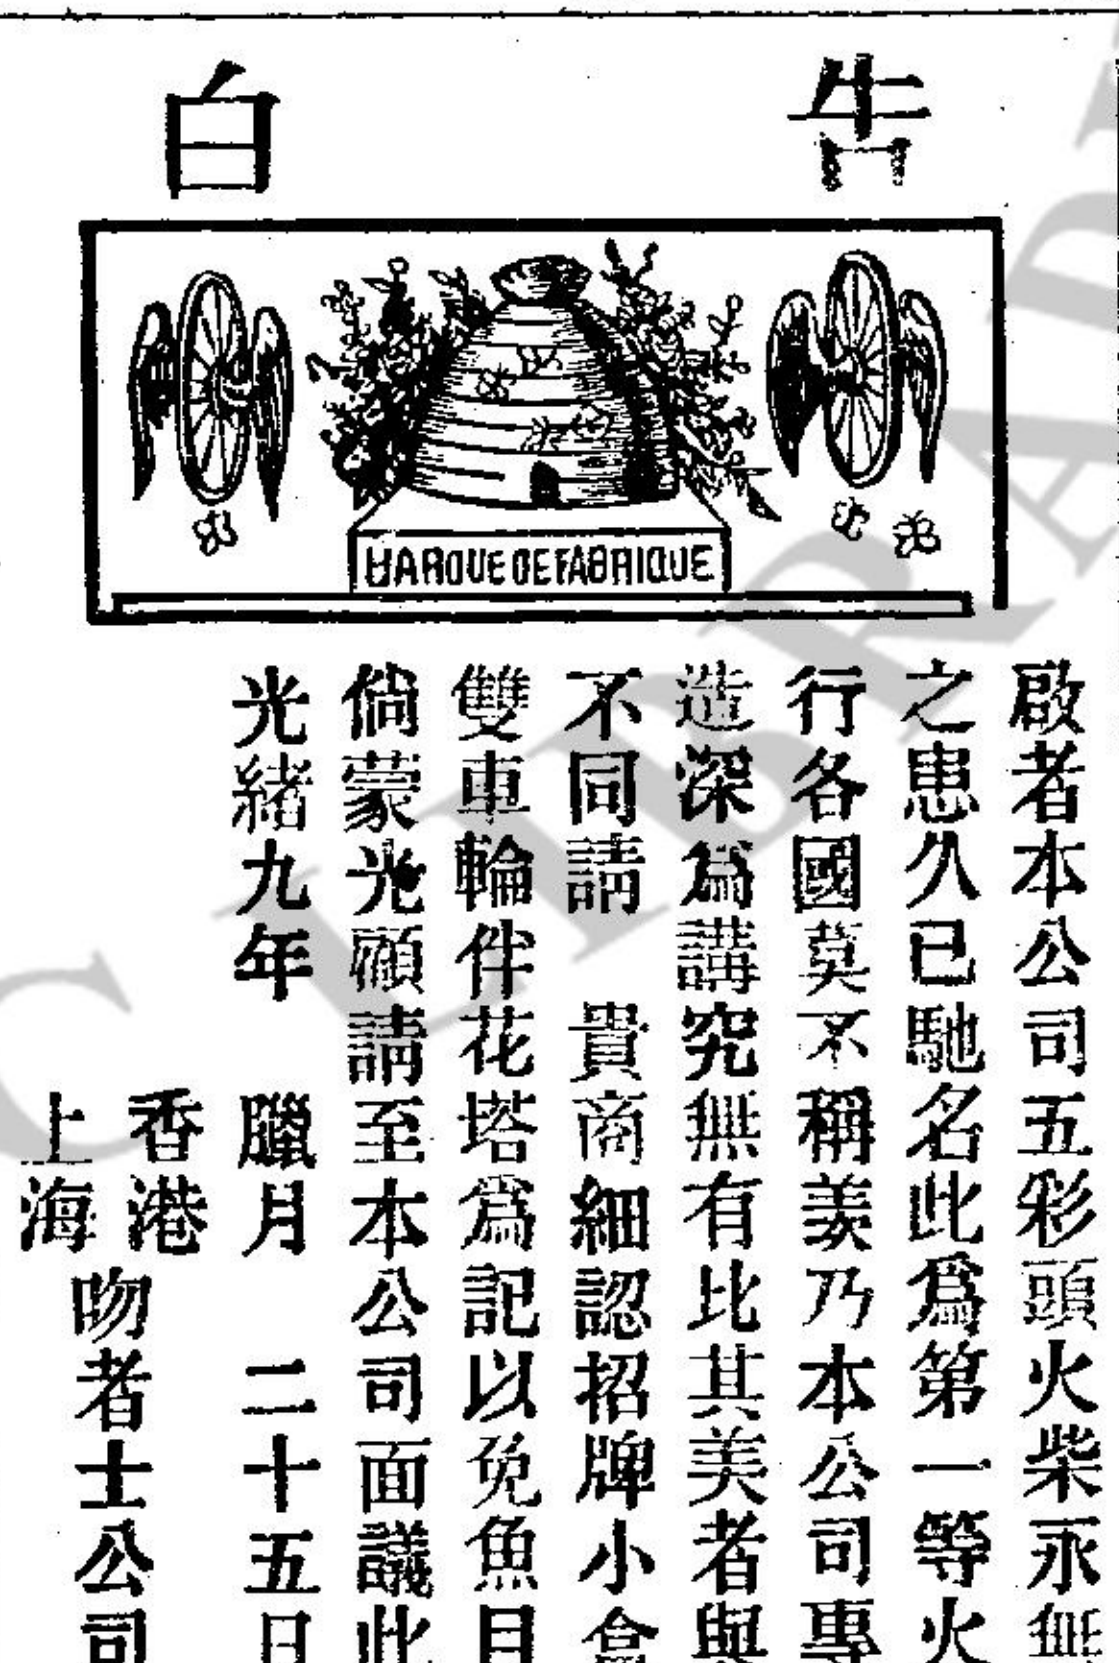 告白
MARQUE DE FABRIQUE
啟者本公司五彩頭火柴永無
之患久已馳名此爲第一等火
行各國莫不稱羨乃本公司專
造深爲講究無有比其美者與
不同請 貴商細認招牌小盒
雙車輪伴花塔爲記以免魚目
倘蒙光顧請至本公司面議此
光緒九年 臘月 二十五日
香港
上海
吻者士公司